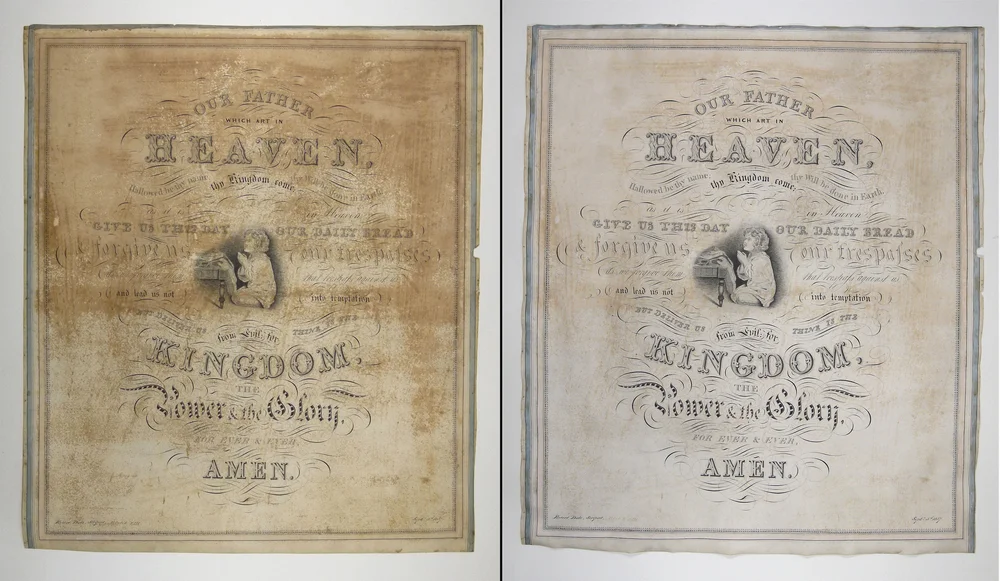 OUR FATHER
WHICH ART IN
HEAVEN,
Hallowed be thy name, thy Kingdom come, thy Will be done in Earth,
as it is in Heaven
GIVE US THIS DAY OUR DAILY BREAD
& forgive us our trespasses
that trespass against us
and lead us not into temptation
BUT DELIVER US from Evil; for THINE IS THE
KINGDOM,
THE
Power & the Glory,
FOR EVER & EVER,
AMEN.
OUR FATHER
WHICH ART IN
HEAVEN,
Hallowed be thy name, thy Kingdom come, thy Will be done in Earth,
as it is in Heaven
GIVE US THIS DAY OUR DAILY BREAD
& forgive us our trespasses
As we forgive them that trespass against us
and lead us not into temptation
BUT DELIVER US from Evil; for THINE IS THE
KINGDOM,
THE
Power & the Glory,
FOR EVER & EVER,
AMEN.